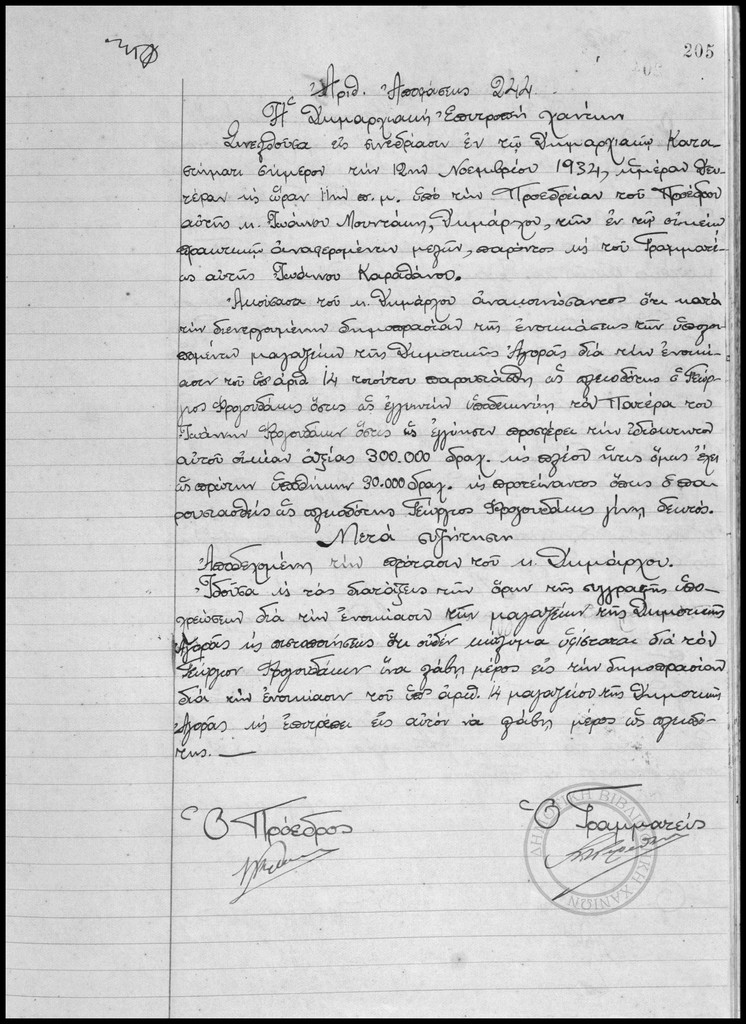 205
Ἀριθ. Ἀποφάσεως 244
Ἡ Δημαρχιακή Ἐπιτροπή Χανίων
Συνελθοῦσα εἰς συνεδρίασιν ἐν τῷ Δημαρχιακῷ Κατα-
στήματι σήμερον τήν 12ην Νοεμβρίου 1934, ἡμέραν Δευ-
τέραν κ ὥραν 11ην π.μ. ὑπό τήν Προεδρείαν τοῦ Προέδρου
αὐτῆς κ. Ἰωάννου Μουντάκη, Δημάρχου, τῶν ἐν τῷ οἰκείῳ
πρακτικῷ ἀναφερομένων μελῶν, παρόντος κ τοῦ Γραμματέ-
ως αὐτῆς Ἰωάννου Καραθάνου.
Ἀκούσασα τοῦ κ. Δημάρχου ἀνακοινώσαντος ὅτι κατά
τήν διενεργουμένην δημοπρασίαν τῆς ἐνοικιάσεως τῶν ὑπολοι-
πομένων μαγαζείων τῆς Δημοτικῆς Ἀγορᾶς διά τήν ἐνοικί-
ασιν τοῦ ὑπ' ἀριθ. 14 τοιούτου παρουσιάσθη ὡς πλειοδότης ὁ Γεώρ-
γιος Φραγουδάκης ὅστις ὡς ἐγγυητήν ὑποδεικνύει τόν Πατέρα του
Ἰωάννην Φραγουδάκην ὅστις ὡς ἐγγύησιν προσφέρει τήν ἰδιόκτητον
αὐτοῦ οἰκίαν ἀξίας 300.000 δραχ. κ πλέον ἥτις ὅμως ἔχει
ὡς πρώτην ὑποθήκην 30.000 δραχ. κ προτείναντος ὅπως ὁ πα-
ρουσιασθείς ὡς πλειοδότης Γεώργιος Φραγουδάκης γίνῃ δεκτός.
Μετά συζήτησιν
Ἀποδεχομένη τήν πρότασιν τοῦ κ. Δημάρχου.
Ἰδοῦσα κ τάς διατάξεις τῶν ὅρων τῆς συγγραφῆς ὑπο-
χρεώσεων διά τήν ἐνοικίασιν τῶν μαγαζείων τῆς Δημοτικῆς
Ἀγορᾶς κ πιστοποιήσεως ὅτι οὐδέν κώλυμα ὑφίσταται διά τόν
Γεώργιον Φραγουδάκην ἵνα λάβῃ μέρος εἰς τήν δημοπρασίαν
διά τήν ἐνοικίασιν τοῦ ὑπ' ἀριθ. 14 μαγαζείου τῆς Δημοτικῆς
Ἀγορᾶς κ ἐπιτρέπει εἰς αὐτόν νά λάβῃ μέρος ὡς πλειοδό-
της. —
Ὁ Πρόεδρος
Ὁ Γραμματεύς
ΔΗΜΟΤΙΚΗ ΒΙΒΛΙΟΘΗΚΗ ΧΑΝΙΩΝ